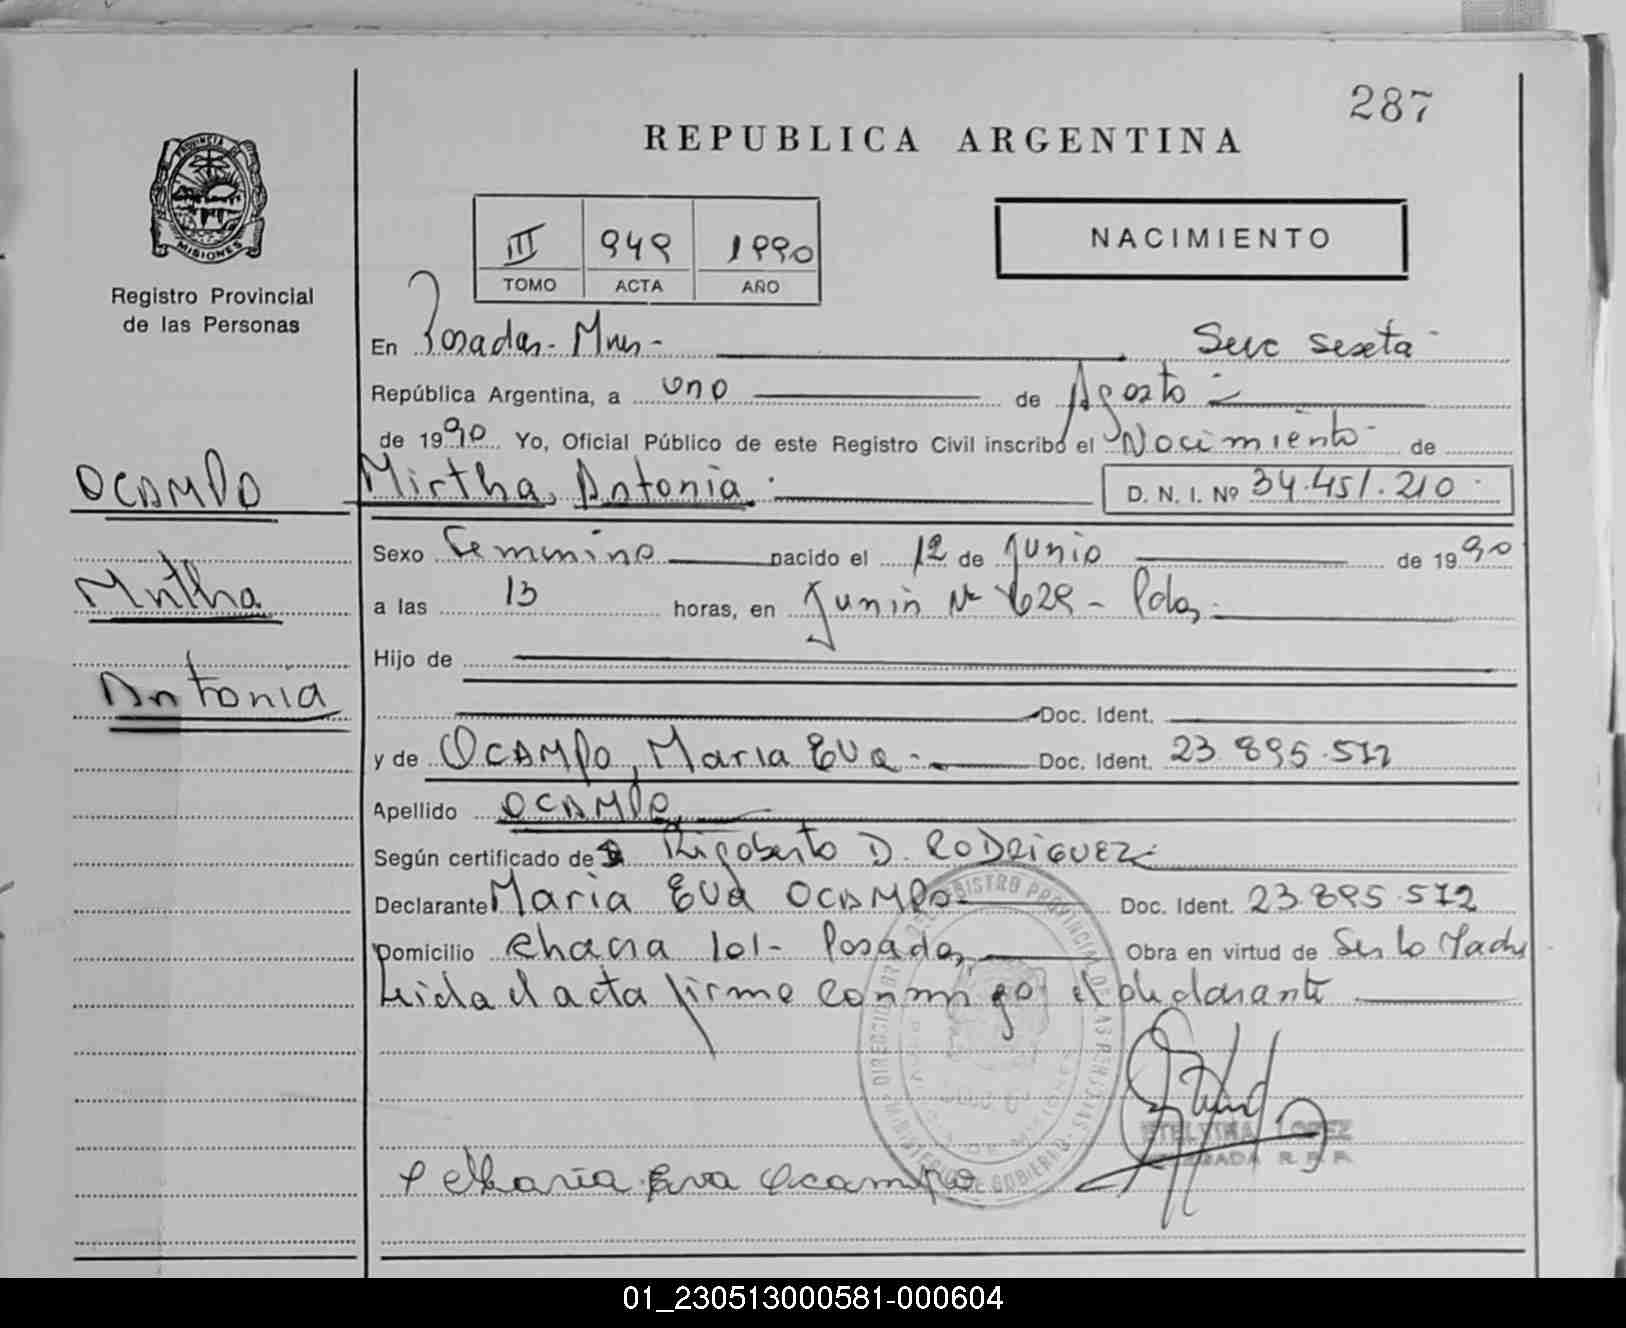 287
REPUBLICA ARGENTINA
PROVINCIA DE
MISIONES
Registro Provincial
de las Personas
III 949 1990
TOMO ACTA AÑO
NACIMIENTO
En Posadas - Mnes - Secc sexta
República Argentina, a uno de Agosto
de 1990 Yo, Oficial Público de este Registro Civil inscribo el Nacimiento de
OCAMPO Mirtha, Antonia D. N. I. Nº 34.451.210
Sexo Femenino nacido el 12 de Junio de 1990
Mirtha
a las 13 horas, en Junin Nº 1629 - Pdas
Hijo de
Antonia
Doc. Ident.
y de OCAMPO, Maria Eva Doc. Ident. 23.895.572
Apellido OCAMPO
Según certificado de Rigoberto D. RODRIGUEZ
Declarante Maria Eva OCAMPO Doc. Ident. 23.895.572
Domicilio chacra 101 - Posadas Obra en virtud de Ser la Madre
Leida el acta firma conmigo el declarante
DIRECCION DEL REGISTRO PROVINCIAL DE LAS PERSONAS
MINISTERIO DE GOBIERNO
PROVINCIA DE MISIONES
ETELVINA LOPEZ
DELEGADA R. P. P.
Maria Eva Ocampo
01_230513000581-000604